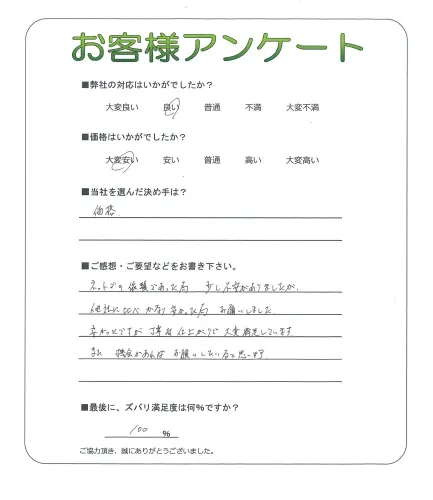 お客様アンケート
■弊社の対応はいかがでしたか？
大変良い 良い 普通 不満 大変不満
■価格はいかがでしたか？
大変安い 安い 普通 高い 大変高い
■当社を選んだ決め手は？
価格.
■ご感想・ご要望などをお書き下さい。
ネットでの依頼であった為 少し不安がありましたが、
他社に比べ かなり安かった為 お願いしました.
安かったですが 丁寧な仕上がりで 大変満足しています.
また 機会があれば お願いしたいと思います.
■最後に、ズバリ満足度は何%ですか？
100 %
ご協力頂き、誠にありがとうございました。